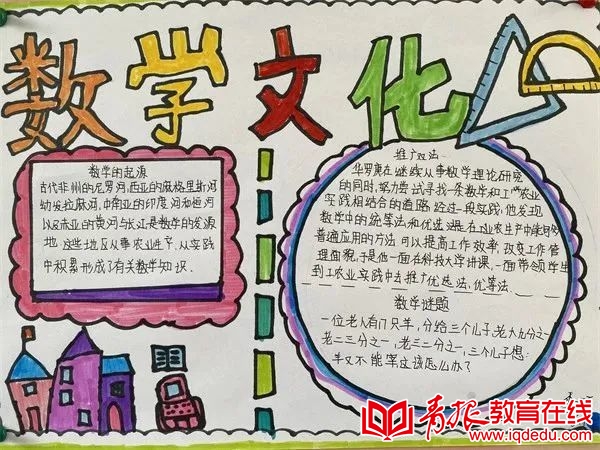 数学文化
数学的起源
古代非州的尼罗河,西亚的底格里斯河
幼发拉底河,中南亚的印度河和恒河
以及东亚的黄河与长江是数学的发源
地 这些地区从事农业生产,从实践
中积累形成了有关数学知识.
推广双法:
华罗庚在继续从事数学理论研究
的同时,努力尝试寻找一条数学和工农业
实践相结合的道路 经过一段实践,他发现
数学中的统筹法和优选法 在工业农业生产中
普通应用的方法 可以提高工作效率,改变工作管
理面貌,于是他一面在科技大学讲课,一面带领学生
到工农业实践中去推广优选法,优筹法.
数学谜题
一位老人有17只羊,分给三个儿子,老大九分之一
老二三分之一,老三二分之一,三个儿子想:
羊又不能宰应该怎么办了
青报教育在线
www.iqdedu.com